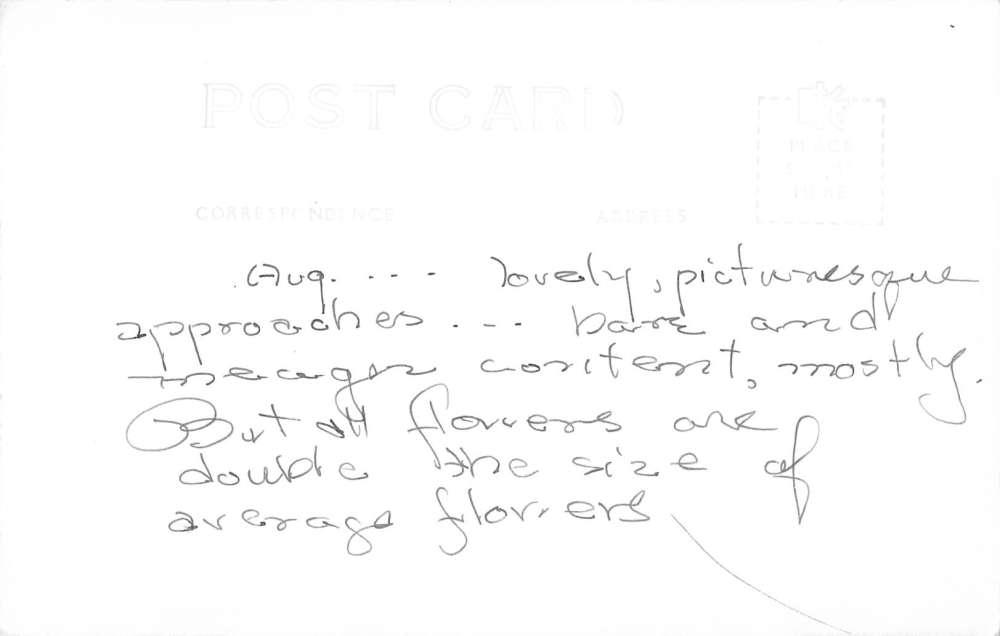 POST CARD
PLACE
STAMP
HERE
CORRESPONDENCE ADDRESS
Aug. --- lovely, picturesque
approaches --- bare and
meager content, mostly.
But all flowers are
double the size of
average flowers